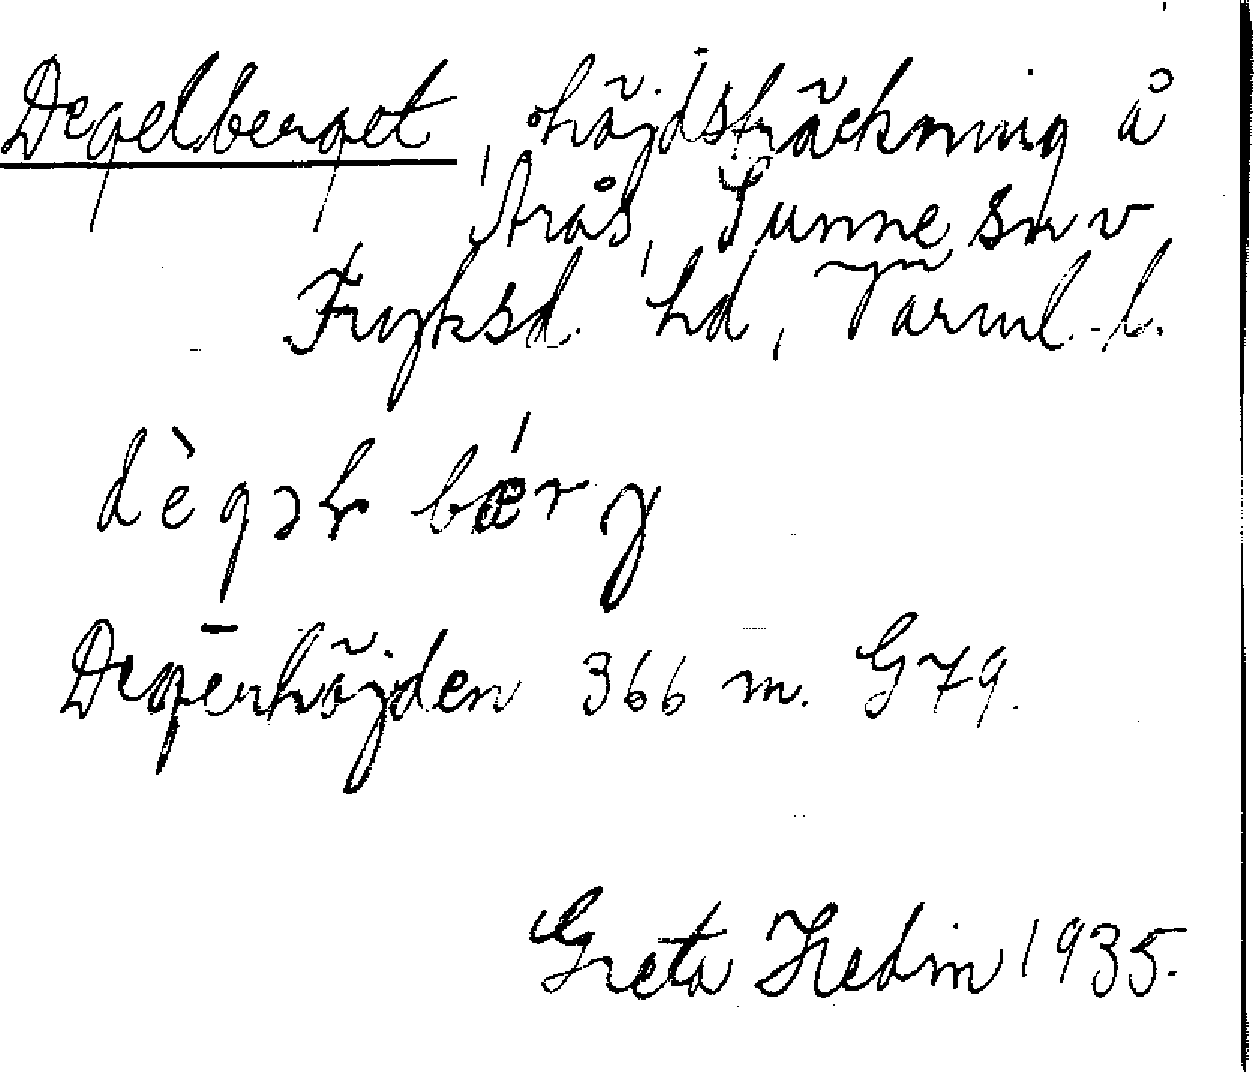 Degelberget, höjdsträckning å
Årås, Sunne sn v
Fryksd. hd, Värml. l.
dègəɫ bǽrg
Degerhöjden 366 m. G79.
Greta Hedin 1935.